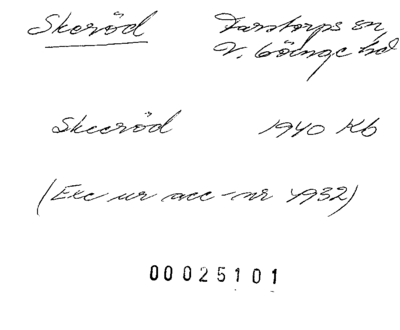 Skeröd Farstorps sn,
V. Göinge hd
Skeeröd 1940 Kb
(Exc ur acc-nr 4932)
00025101